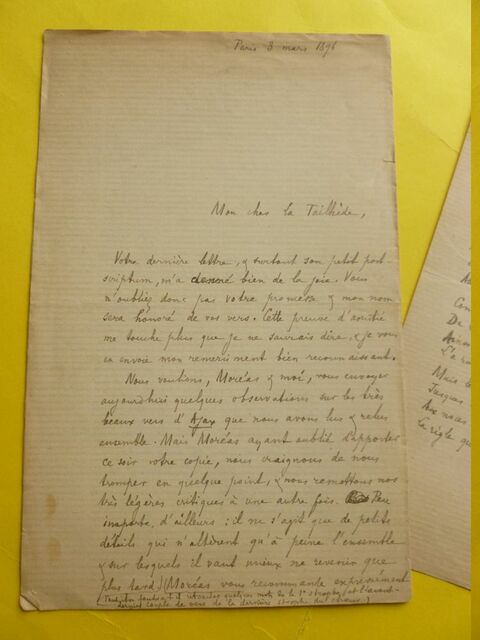 Paris 3 mars 1896
Mon cher la Tailhède,
Votre dernière lettre, & surtout son petit post-
scriptum, m'a donné bien de la joie. Vous
n'oubliez donc pas votre promesse & mon nom
sera honoré de vos vers. Cette preuve d'amitié
me touche plus que je ne saurais dire, & je vous
en envoie mon remerciment bien reconnaissant.
Nous voulions, Moréas & moi, vous envoyer
aujourd'hui quelques observations sur les très
beaux vers d'Ajax que nous avons lus & relus
ensemble. Mais Moréas ayant oublié d'apporter
ce soir votre copie, nous craignons de nous
tromper en quelque point, & nous remettons nos
très légères critiques à une autre fois. Peu
importe, d'ailleurs : il ne s'agit que de petits
détails qui n'altèrent qu'à peine l'ensemble
& sur lesquels il vaut mieux ne revenir que
plus tard. (Moréas vous recommande expressément
quelques mots de la 1e strophe et l'avant-
dernier couple de vers de la dernière strophe du chœur.)
Mais
Aux noces
la règle que